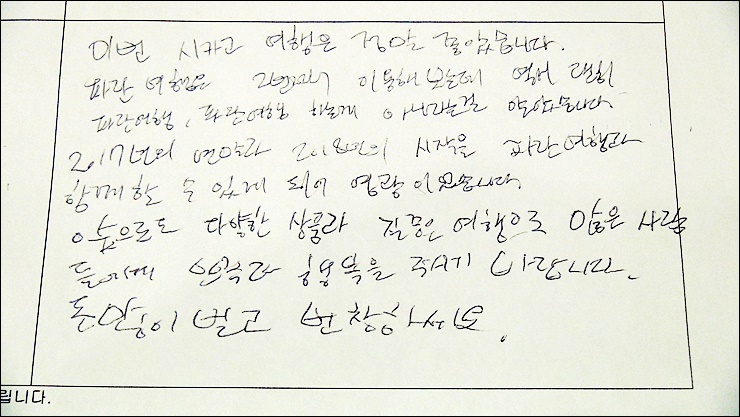 이번 시카고 여행은 정말 좋았습니다.
파란여행은 2번째 이용해보는데 역시 괜히
파란여행, 파란여행 하는게 아니라는걸 알았습니다
2017년의 연말과 2018년의 시작을 파란여행과
함께할 수 있게 되어 영광이었습니다
앞으로도 다양한 상품과 질좋은 여행으로 많은 사람
들에게 만족과 행복을 주시기 바랍니다.
돈많이 벌고 번창하세요.
립니다.